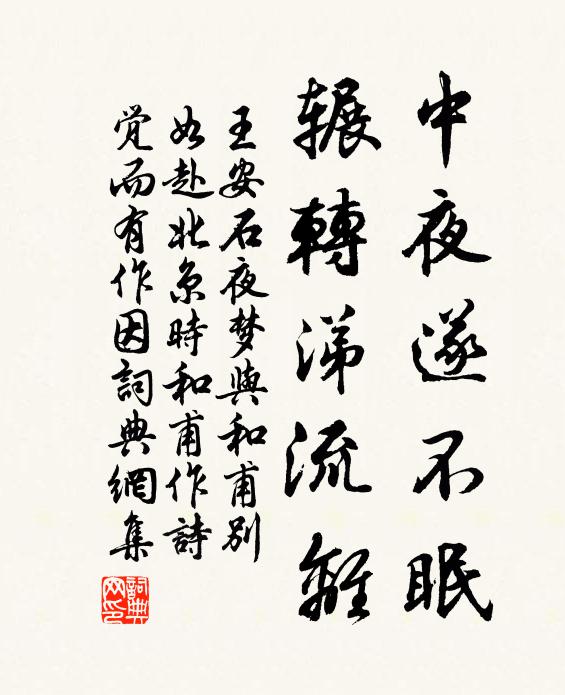 中夜遂不眠
辗轉涕流離
王安石夜梦與和甫别
如赴北京時和甫作詩
觉而有作因詞典網集
詞典网印